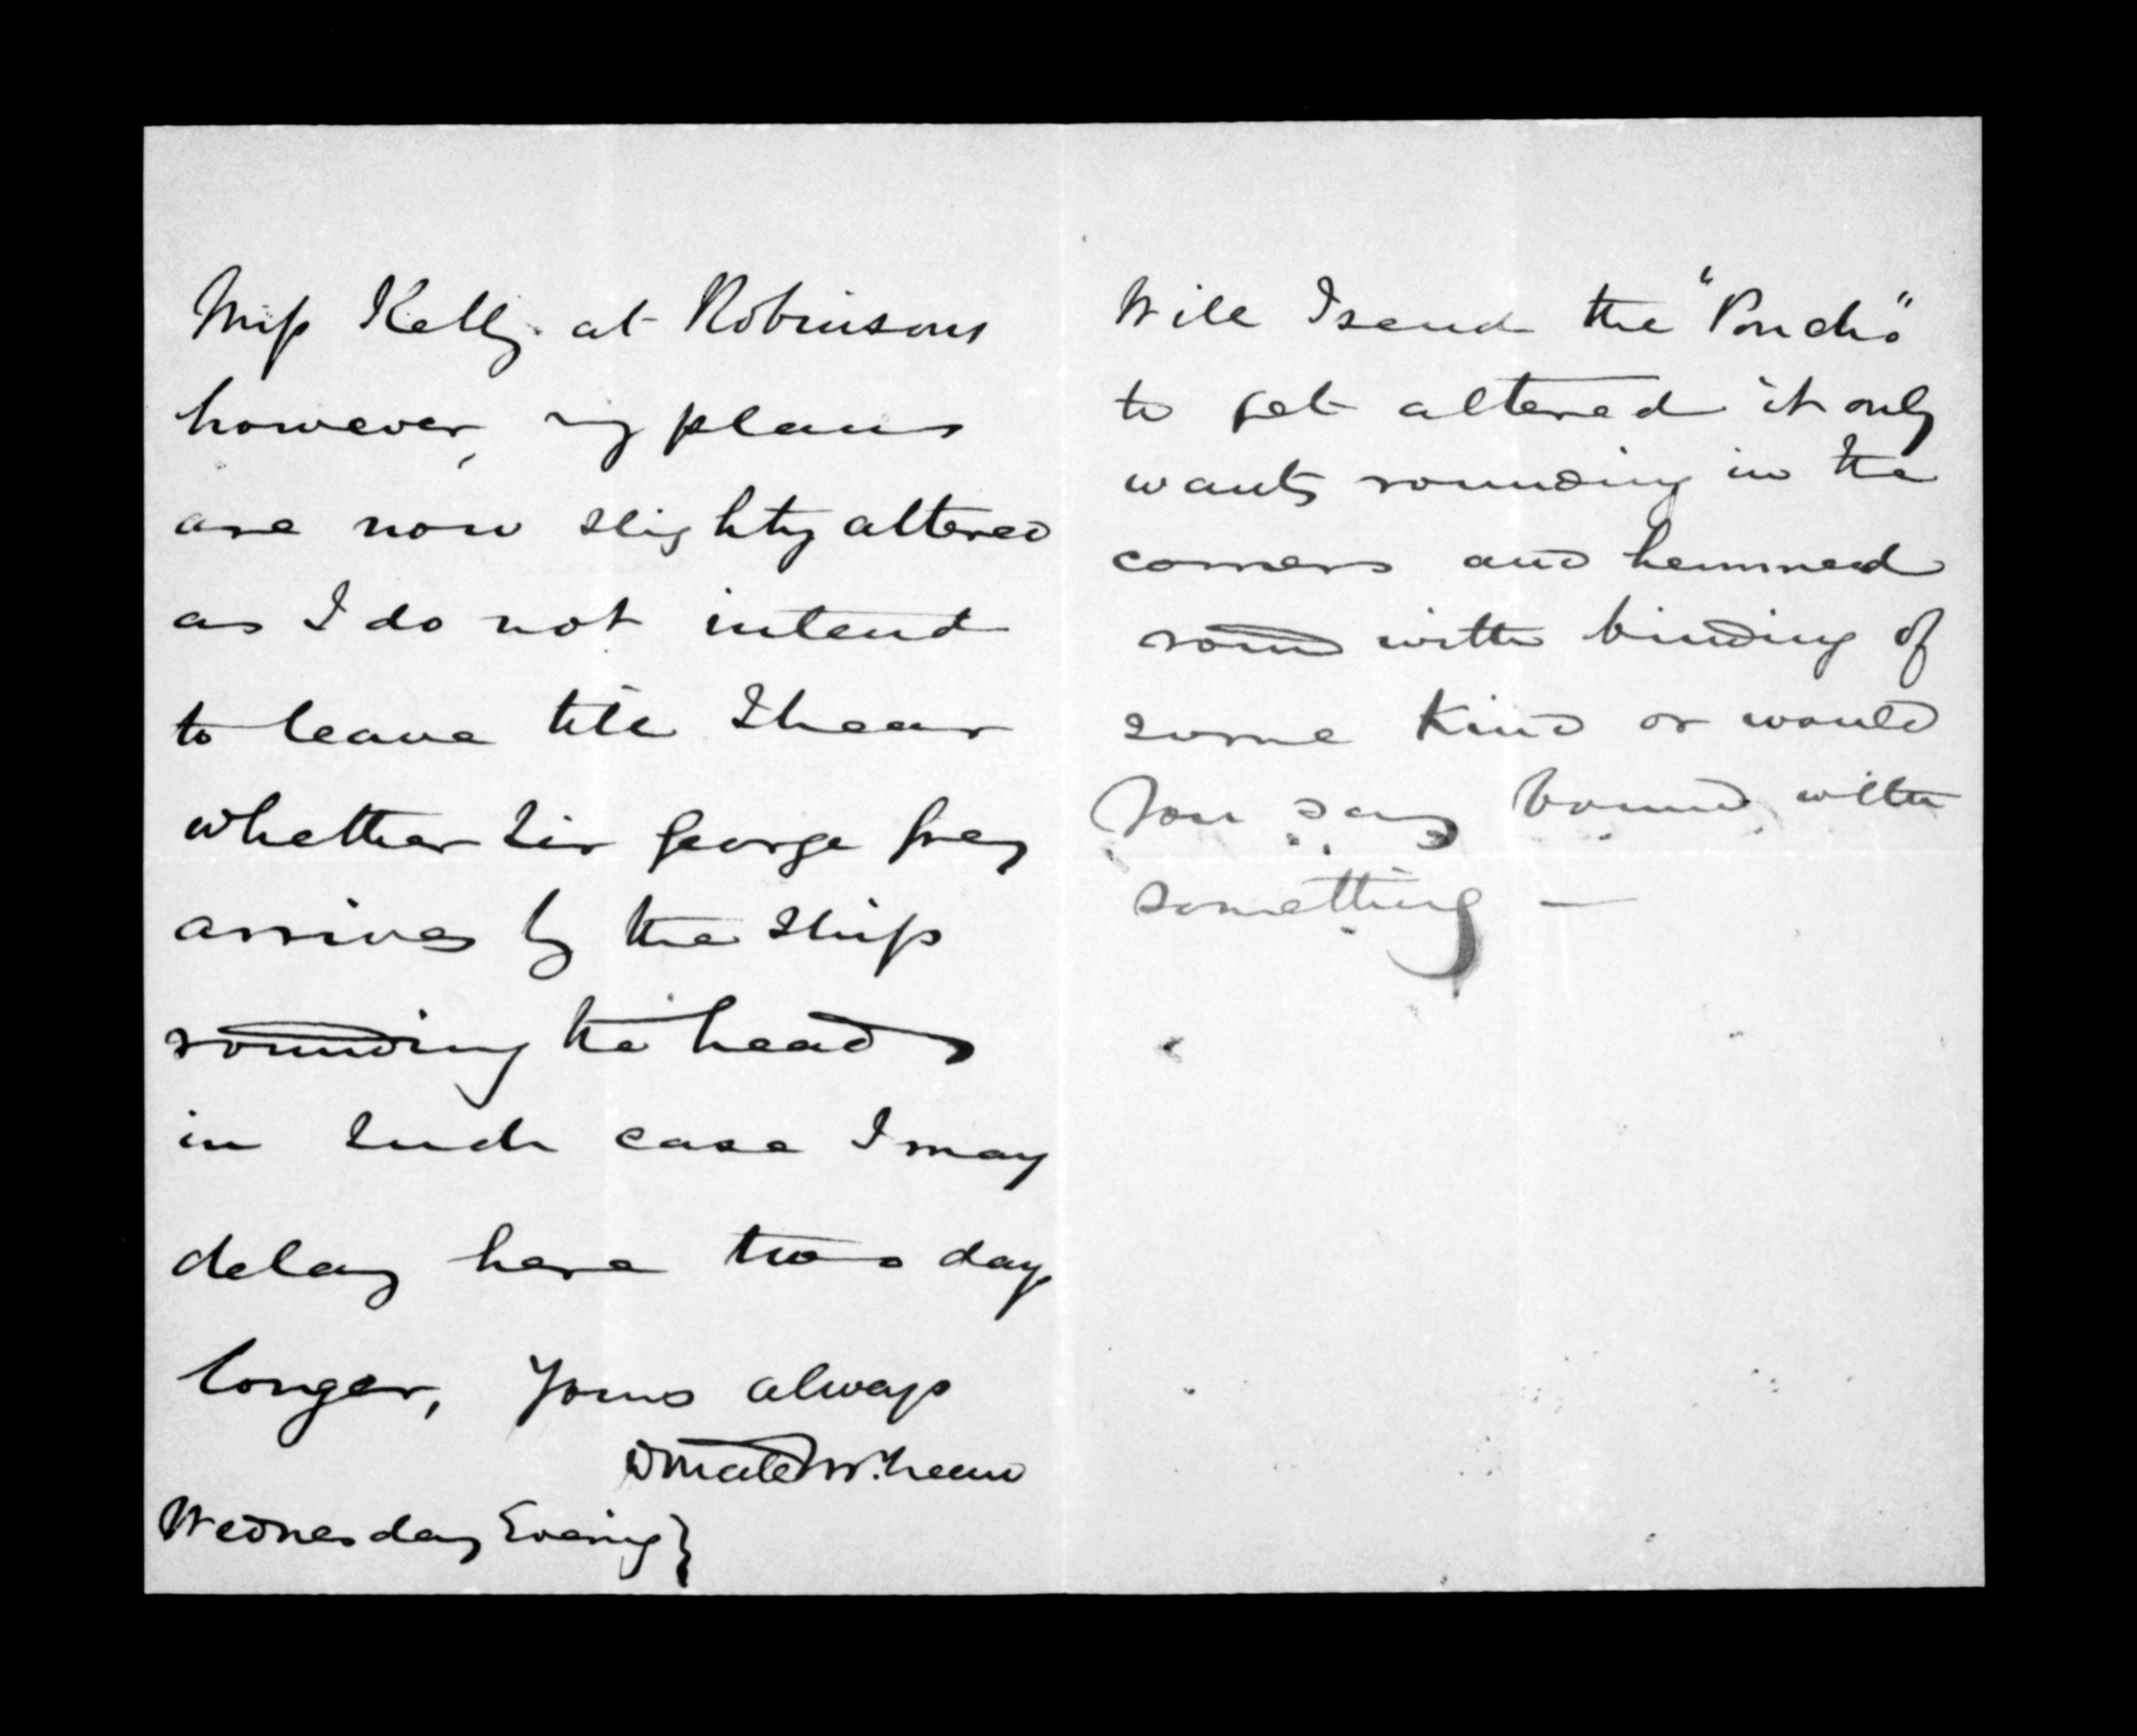 Miss Kelly at Robinsons
however, my plans
are now slightly altered
as I do not intend
to leave till I hear
whether Sir George Grey
arrives by the Ship
rounding the heads
in such case I may
delay here two days
longer, Yours always
Wednesday Evening }
Will I send the "Poncho"
to get altered it only
wants rounding in the
corners and hemmed
round with binding of
some kind or would
you say bound with
something —